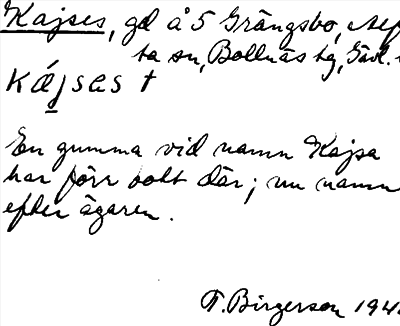 Kajses, gd å 5 Grängsbo, Alf
ta sn, Bollnäs tg, Gävl.
kájses †
En gumma vid namn Kajsa
har förr bott där; nu namn
efter ägaren.
T. Birgerson 194